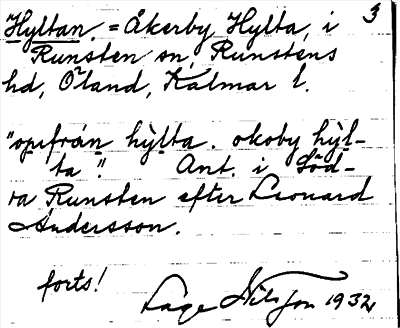 3
Hyltan. = Åkerby Hylta, i
Runsten sn, Runstens
hd, Öland, Kalmar l.
"opifrån hylta. okoby hyl-
ta". Ant. i Söd-
ra Runsten efter Leonard
Andersson.
forts!
Lage Nilsson 1932